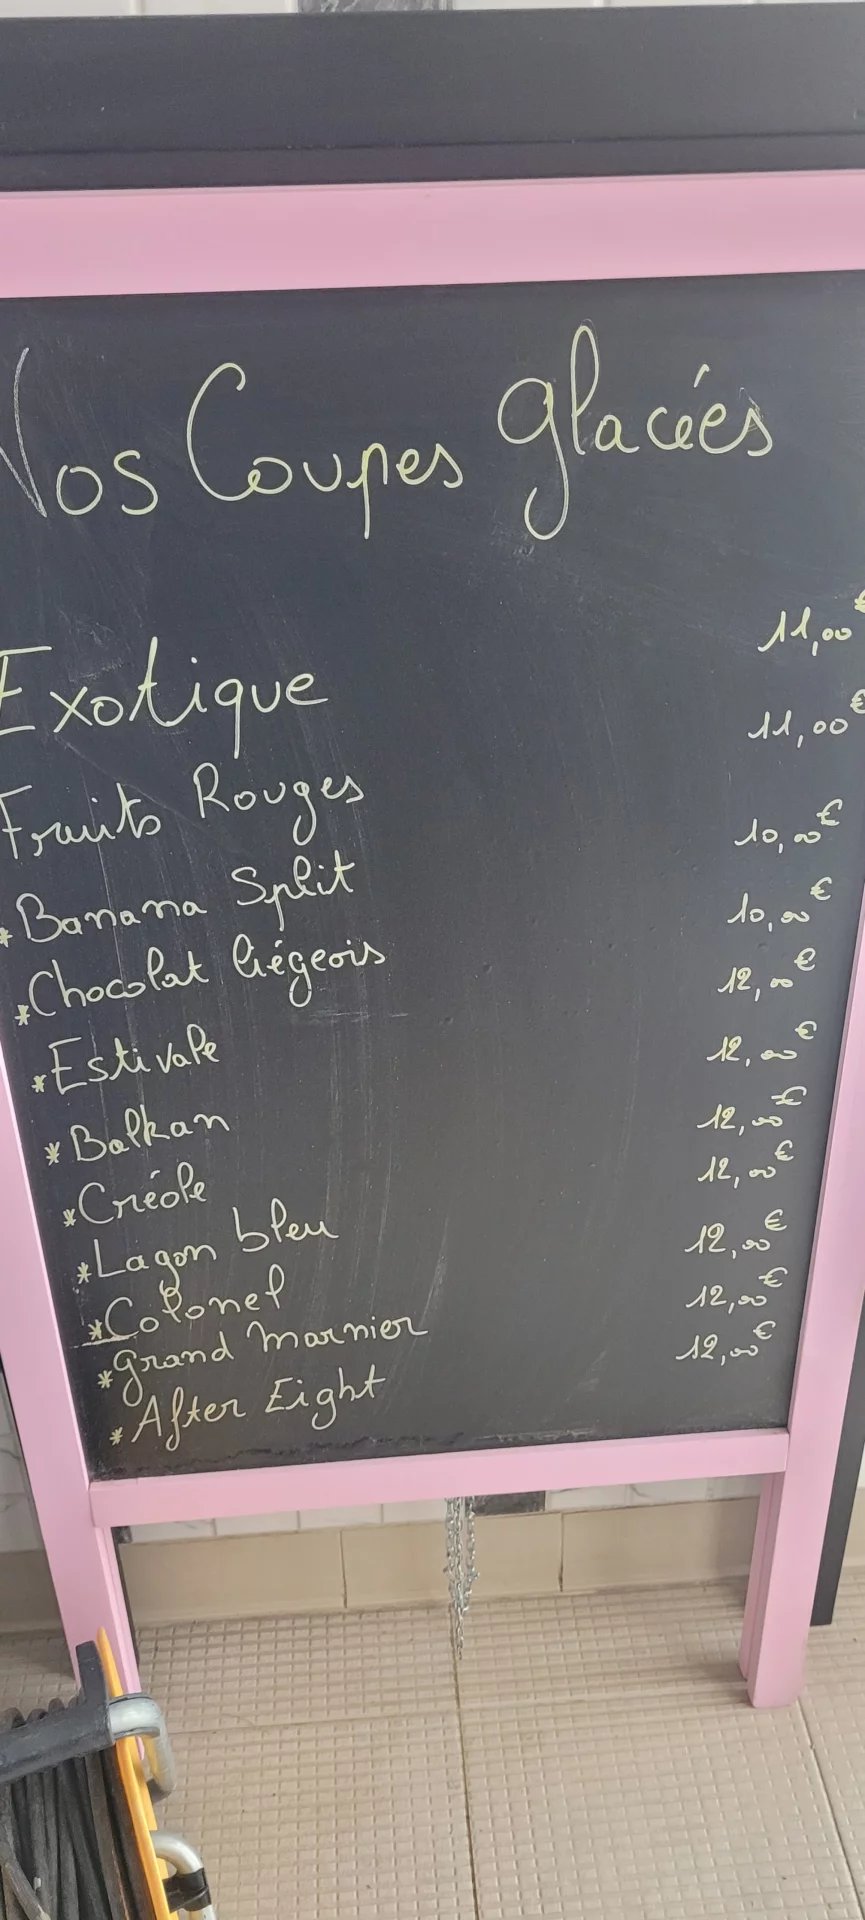 Nos Coupes glacées
Exotique 11,00€
Fruits Rouges 11,00€
*Banana Split 10,00€
*Chocolat liégeois 10,00€
*Estivale 12,00€
*Balkan 12,00€
*Créole 12,00€
*Lagon bleu 12,00€
*Colonel 12,00€
*Grand Marnier 12,00€
*After Eight 12,00€